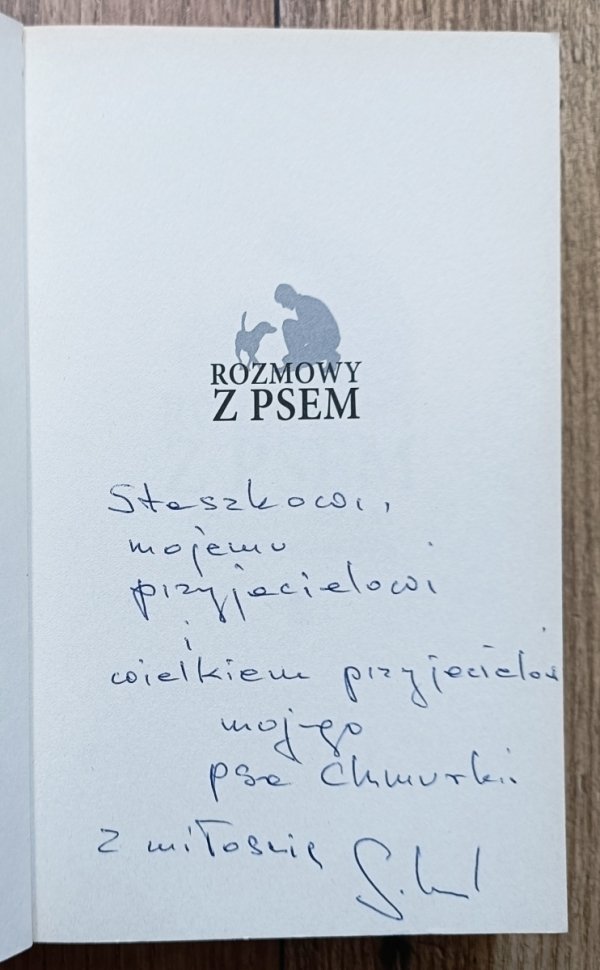 ROZMOWY
Z PSEM
Staszkowi,
mojemu
przyjacielowi
i
wielkiemu przyjacielowi
mojego
psa Chmurki
z miłością